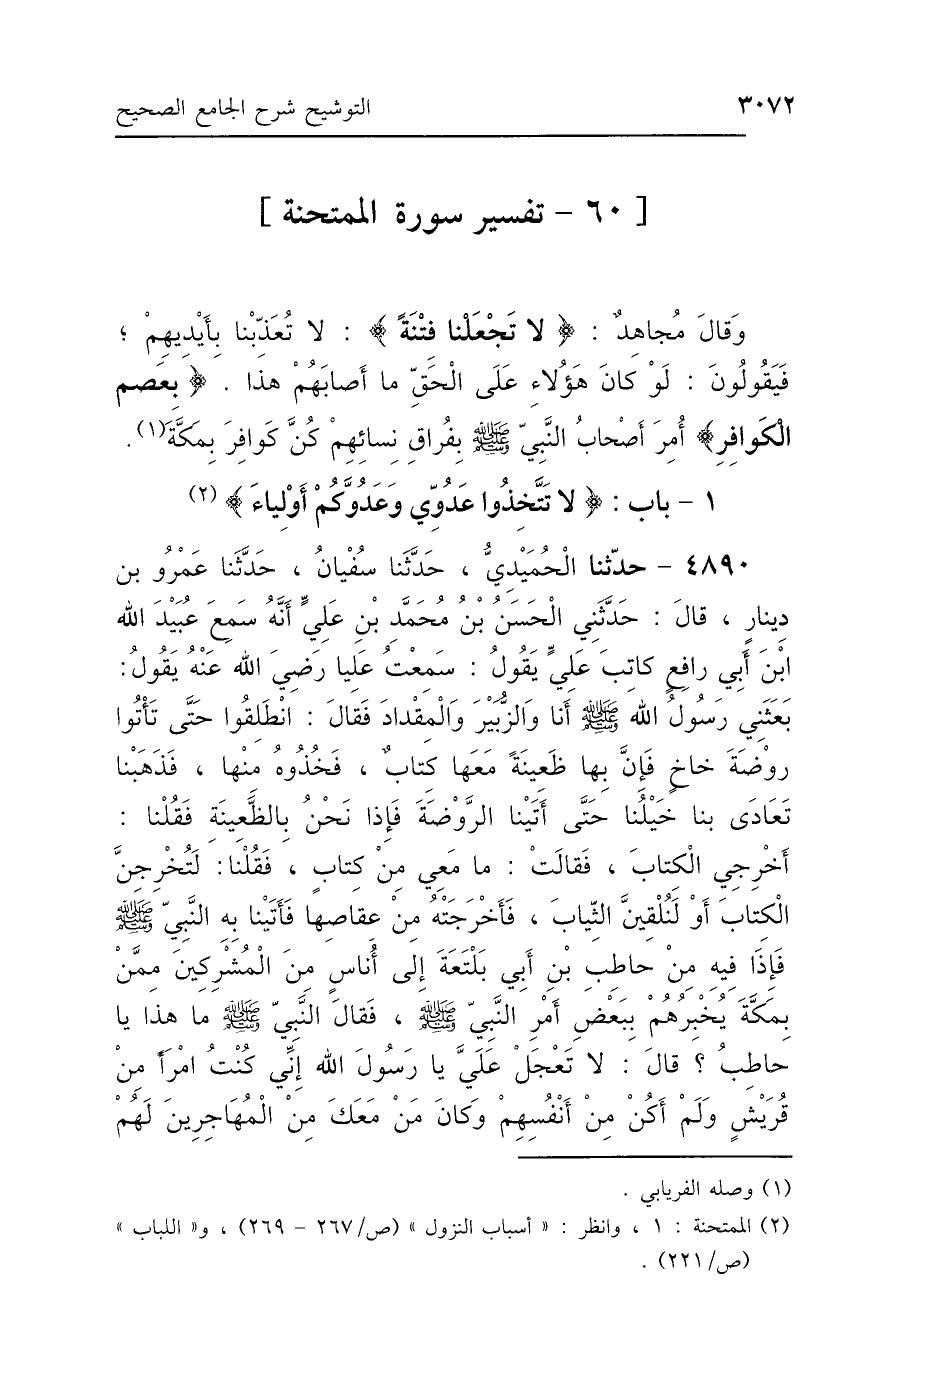 ٣٠٧٢ التوشيح شرح الجامع الصحيح
[ ٦٠ - تفسير سورة الممتحنة ]
وَقالَ مُجاهِدٌ : ﴿ لا تَجْعَلْنا فِتْنَةً ﴾ : لا تُعَذّبْنا بِأَيْدِيهِمْ ؛
فَيَقُولُونَ : لَوْ كانَ هَؤُلاءِ عَلَى الْحَقِّ ما أَصابَهُمْ هذا . ﴿ بِعِصَمِ
الْكَوافِرِ﴾ أُمِرَ أَصْحابُ النَّبِيّ ﷺ بِفُراقِ نِسائِهِمْ كُنَّ كَوافِرَ بِمَكَّةَ(١).
١ - باب : ﴿ لا تَتَّخِذُوا عَدُوّي وَعَدُوَّكُمْ أَوْلِياءَ ﴾ (٢)
٤٨٩٠ - حدّثنا الْحُمَيْدِيُّ ، حَدَّثَنا سُفْيانُ ، حَدَّثَنا عَمْرُو بن
دِينارٍ ، قالَ : حَدَّثَنِي الْحَسَنُ بْنُ مُحَمَّدِ بْنِ عَلِيٍّ أَنَّهُ سَمِعَ عُبَيْدَ الله
ابْنَ أَبِي رافِعٍ كاتِبَ عَلِيٍّ يَقُولُ : سَمِعْتُ عَلِيا رَضِيَ الله عَنْهُ يَقُولُ:
بَعَثَنِي رَسُولُ الله ﷺ أَنا وَالزُّبَيْرَ وَالْمِقْدادَ فَقالَ : انْطَلِقُوا حَتَّى تَأْتُوا
رَوْضَةَ خاخٍ فَإِنَّ بِها ظَعِينَةً مَعَها كِتابٌ ، فَخُذُوهُ مِنْها ، فَذَهَبْنا
تَعادَى بنا خَيْلُنا حَتَّى أَتَيْنا الرَّوْضَةَ فَإِذا نَحْنُ بِالظَّعِينَةِ فَقُلْنا :
أَخْرِجِي الْكِتابَ ، فَقالَتْ : ما مَعِي مِنْ كِتابٍ ، فَقُلْنا: لَتُخْرِجِنَّ
الْكِتابَ أَوْ لَنُلْقِيَنَّ الثِّيابَ ، فَأَخْرَجَتْهُ مِنْ عِقاصِها فَأَتَيْنا بِهِ النَّبِيّ ﷺ
فَإِذَا فِيهِ مِنْ حاطِبِ بْنِ أَبِي بَلْتَعَةَ إِلى أُناسٍ مِنَ الْمُشْرِكِينَ مِمَّنْ
بِمَكَّةَ يُخْبِرُهُمْ بِبَعْضِ أَمْرِ النَّبِيّ ﷺ ، فَقالَ النَّبِيّ ﷺ ما هذا يا
حاطِبُ ؟ قالَ : لا تَعْجَلْ عَلَيَّ يا رَسُولَ الله إِنِّي كُنْتُ امْرَأً مِنْ
قُرَيْشٍ وَلَمْ أَكُنْ مِنْ أَنْفُسِهِمْ وَكانَ مَنْ مَعَكَ مِنْ الْمُهَاجِرِينَ لَهُمْ
(١) وصله الفريابي .
(٢) الممتحنة : ١ ، وانظر : « أسباب النزول » (ص/٢٦٧ - ٢٦٩) ، و« اللباب »
(ص/٢٢١) .